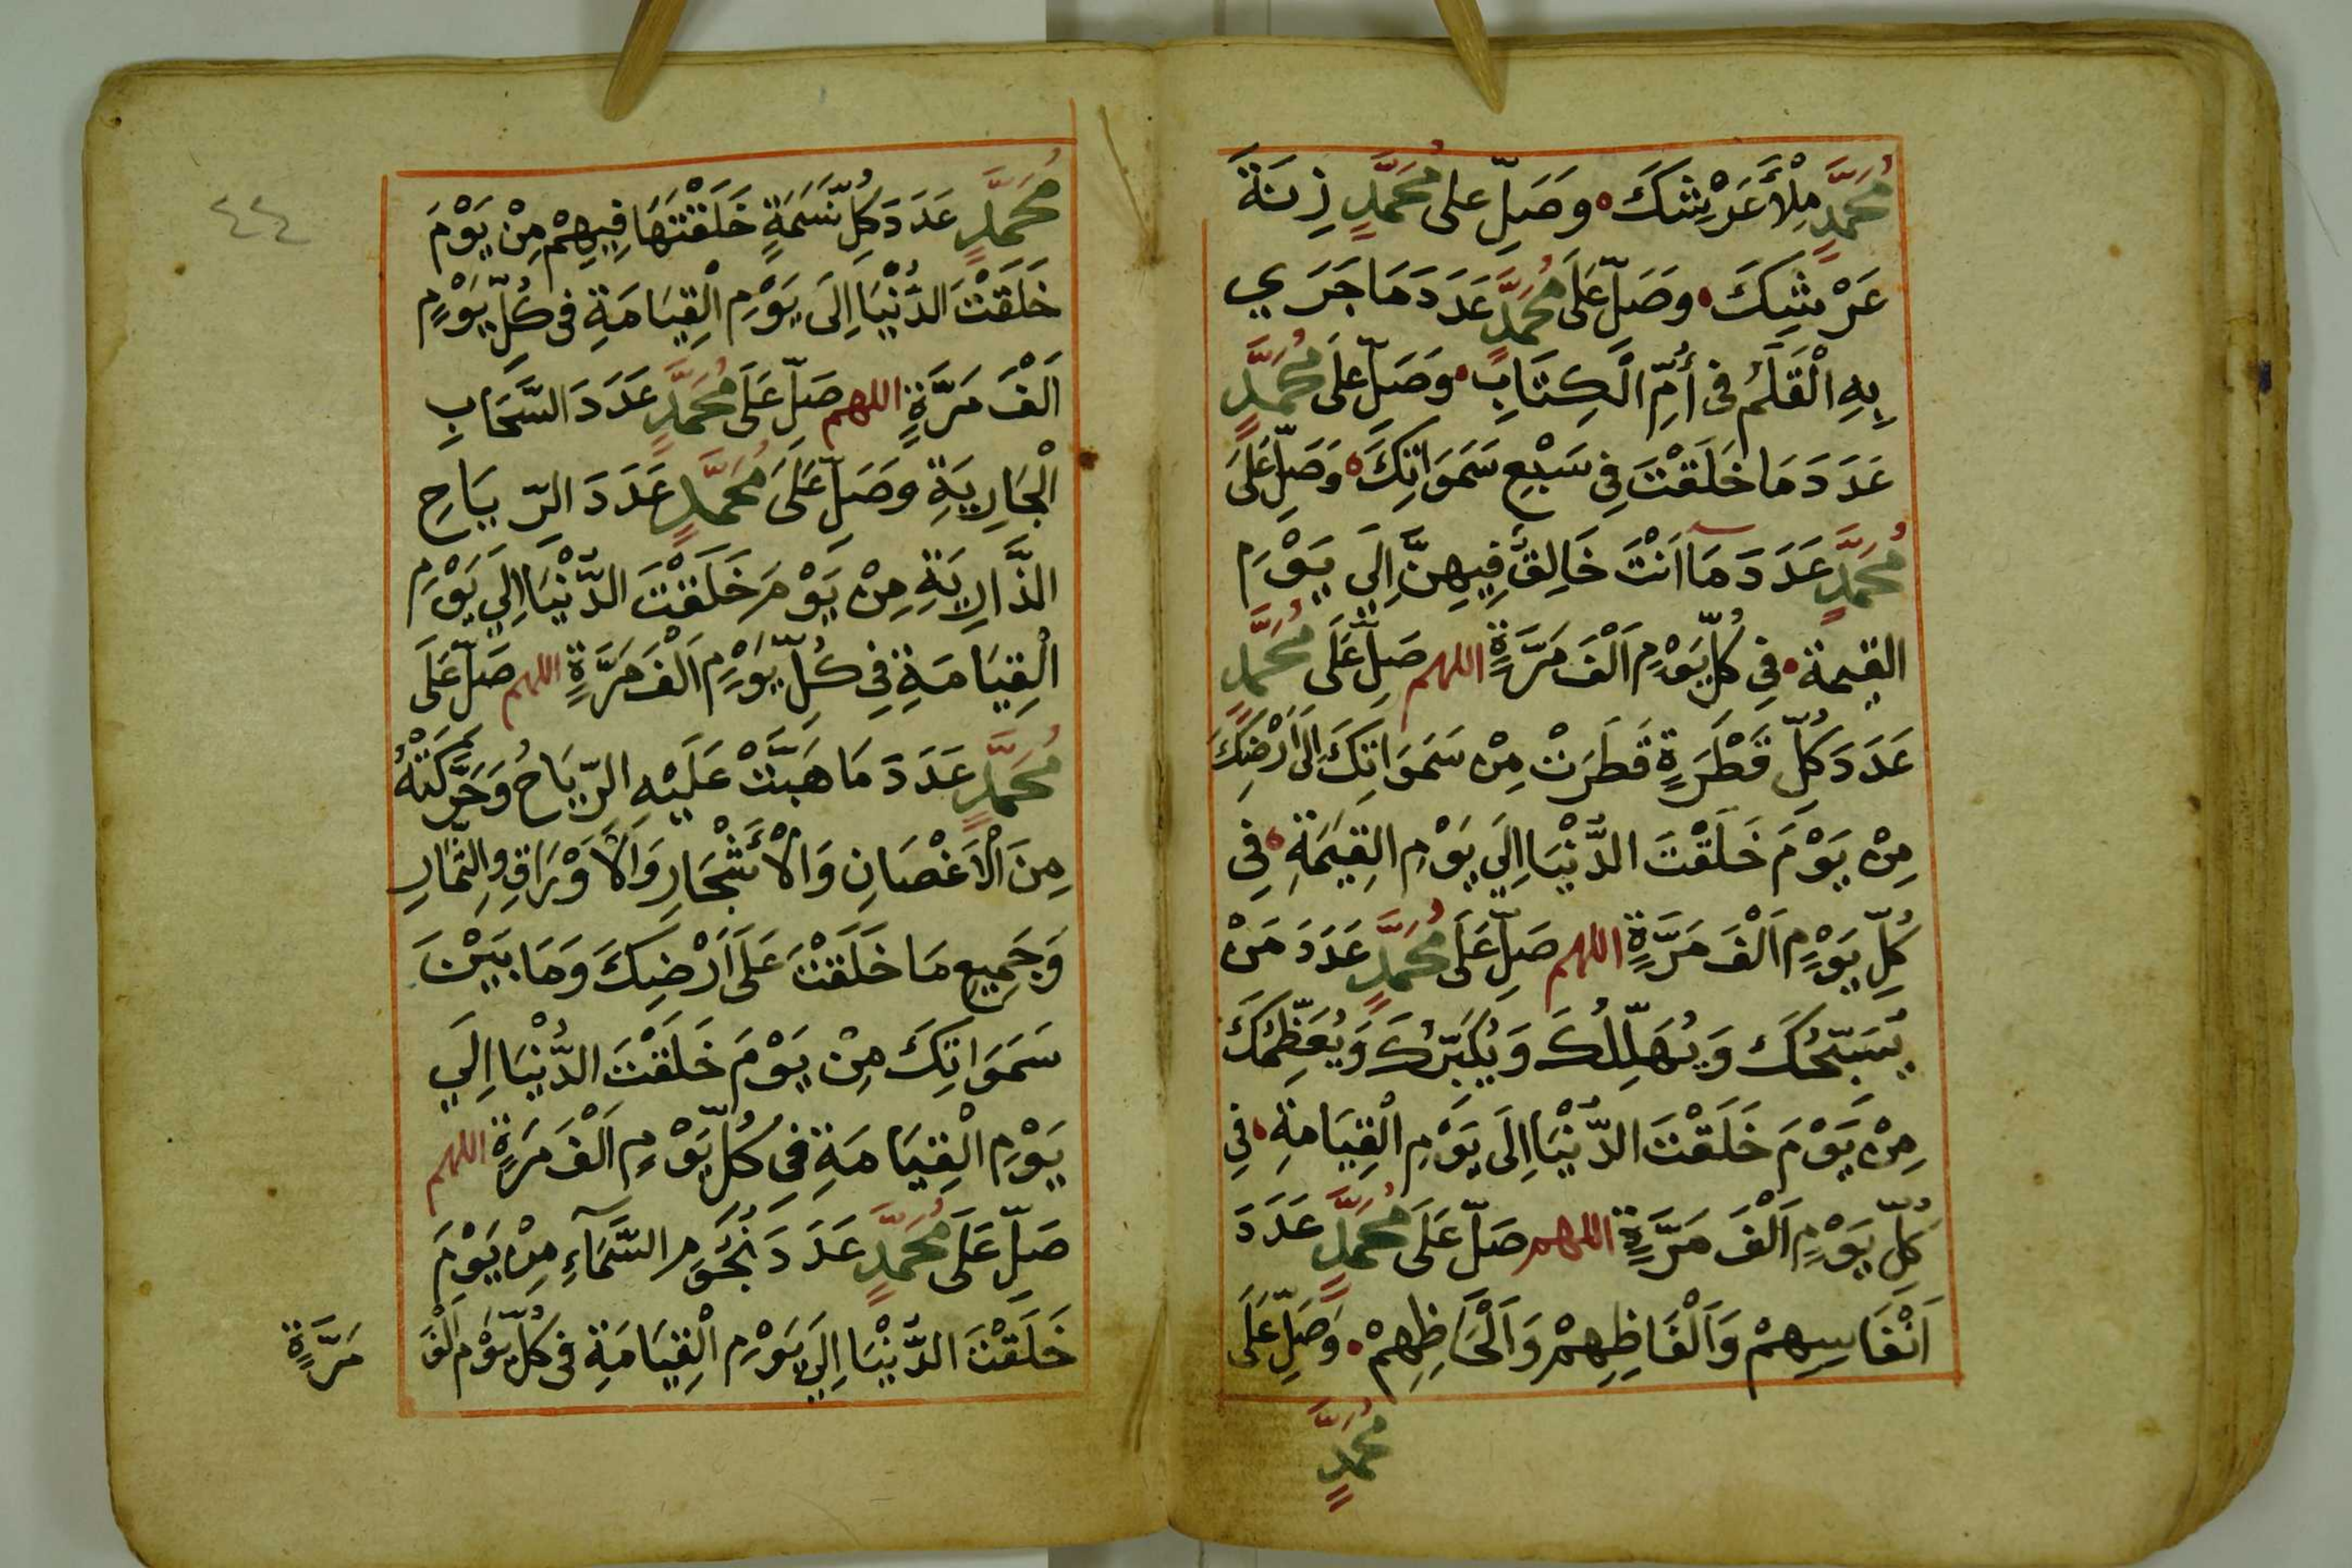 مُحَمَّدٍ مِلْأَ عَرْشِكَ وَصَلِّ على مُحَمَّدٍ زِنَةَ
عَرْشِكَ وَصَلِّ عَلَى مُحَمَّدٍ عَدَدَ مَا جَرَي
بِهِ الْقَلَمُ فى أُمِّ الْكِتَابِ وَصَلِّ عَلَى مُحَمَّدٍ
عَدَدَ مَا خَلَقْتَ فِي سَبْعِ سَمَوَاتِكَ وَصَلِّ عَلَى
مُحَمَّدٍ عَدَدَ مَا اَنْتَ خَالِقٌ فِيهِنَّ اِلَى يَوْمِ
القيمة فِي كُلِّ يَوْمٍ اَلْفَ مَرَّةٍ اللهم صَلِّ عَلَى مُحَمَّدٍ
عَدَدَ كُلِّ قَطْرَةٍ قَطَرَتْ مِنْ سَمَوَاتِكَ اِلَى اَرْضِكَ
مِنْ يَوْمَ خَلَقْتَ الدُّنْيَا اِلَي يَوْمِ القِيَمَةِ فِي
كُلِّ يَوْمٍ اَلْفَ مَرَّةٍ اللهم صَلِّ عَلَى مُحَمَّدٍ عَدَدَ مَنْ
يُسَبِّحُكَ وَيُهَلِّلُكَ وَيُكَبِّرُكَ وَيُعَظِّمُكَ
مِنْ يَوْمَ خَلَقْتَ الدُّنْيَا اِلَى يَوْمِ الْقِيَامَةِ فِي
كُلِّ يَوْمٍ اَلْفَ مَرَّةٍ اللهم صَلِّ عَلَى مُحَمَّدٍ عَدَدَ
اَنْفَاسِهِمْ وَاَلْفَاظِهِمْ وَاَلْحَاظِهِمْ وَصَلِّ عَلَى
مُحَمَّدٍ
٤٤
مُحَمَّدٍ عَدَدَ كُلِّ نَسَمَةٍ خَلَقْتَهَا فِيهِمْ مِنْ يَوْمَ
خَلَقْتَ الدُّنْيَا اِلَى يَوْمِ الْقِيَامَةِ فى كُلِّ يَوْمٍ
اَلْفَ مَرَّةٍ اللهم صَلِّ عَلَى مُحَمَّدٍ عَدَدَ السَّحَابِ
الْجَارِيَةِ وَصَلِّ عَلَى مُحَمَّدٍ عَدَدَ الرِّيَاحِ
الذَّارِيَةِ مِنْ يَوْمَ خَلَقْتَ الدُّنْيَا اِلَي يَوْمِ
الْقِيَامَةِ فِي كُلِّ يَوْمٍ اَلْفَ مَرَّةٍ اللهم صَلِّ عَلَى
مُحَمَّدٍ عَدَدَ مَا هَبَّتْ عَلَيْهِ الرِّيَاحُ وَحَرَّكَتْهُ
مِنَ الْاَغْصَانِ وَالْأَشْجَارِ وَالْاَوْرَاقِ وِالثِّمَارِ
وَجَمِيعِ مَا خَلَقْتَ عَلَى اَرْضِكَ وَمَا بَيْنَ
سَمَوَاتِكَ مِنْ يَوْمَ خَلَقْتَ الدُّنْيَا اِلَي
يَوْمِ الْقِيَامَةِ فِى كُلِّ يَوْمٍ اَلْفَ مَرَةٍ اللهم
صَلِّ عَلَى مُحَمَّدٍ عَدَدَ نُجُومِ السَّمَآءِ مِنْ يَوْمَ
خَلَقْتَ الدُّنْيَا اِلَي يَوْمِ الْقِيَامَةِ فى كُلِّ يَوْمٍ اَلْفَ
مَرَّةٍ